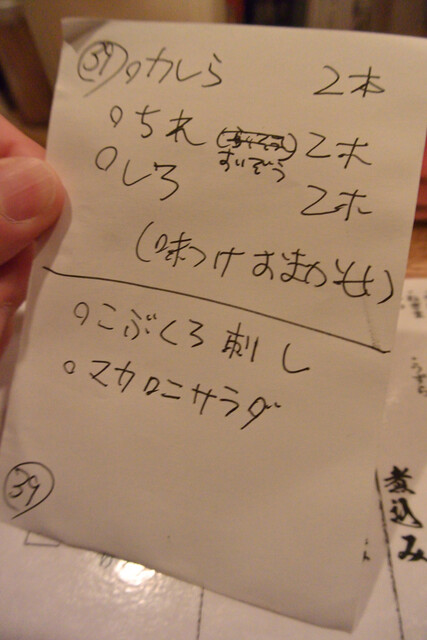 ㊴ ○カしら 2本
○ちれ (すいぞう) 2本
すいぞう
○しろ 2本
(味つけおまかせ)
○こぶくろ刺し
○マカロニサラダ
㊴
煮込み